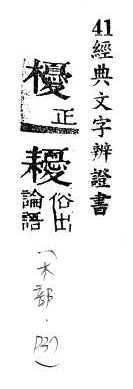 41經典文字辨證書
櫌正耰俗出論語
(木部．